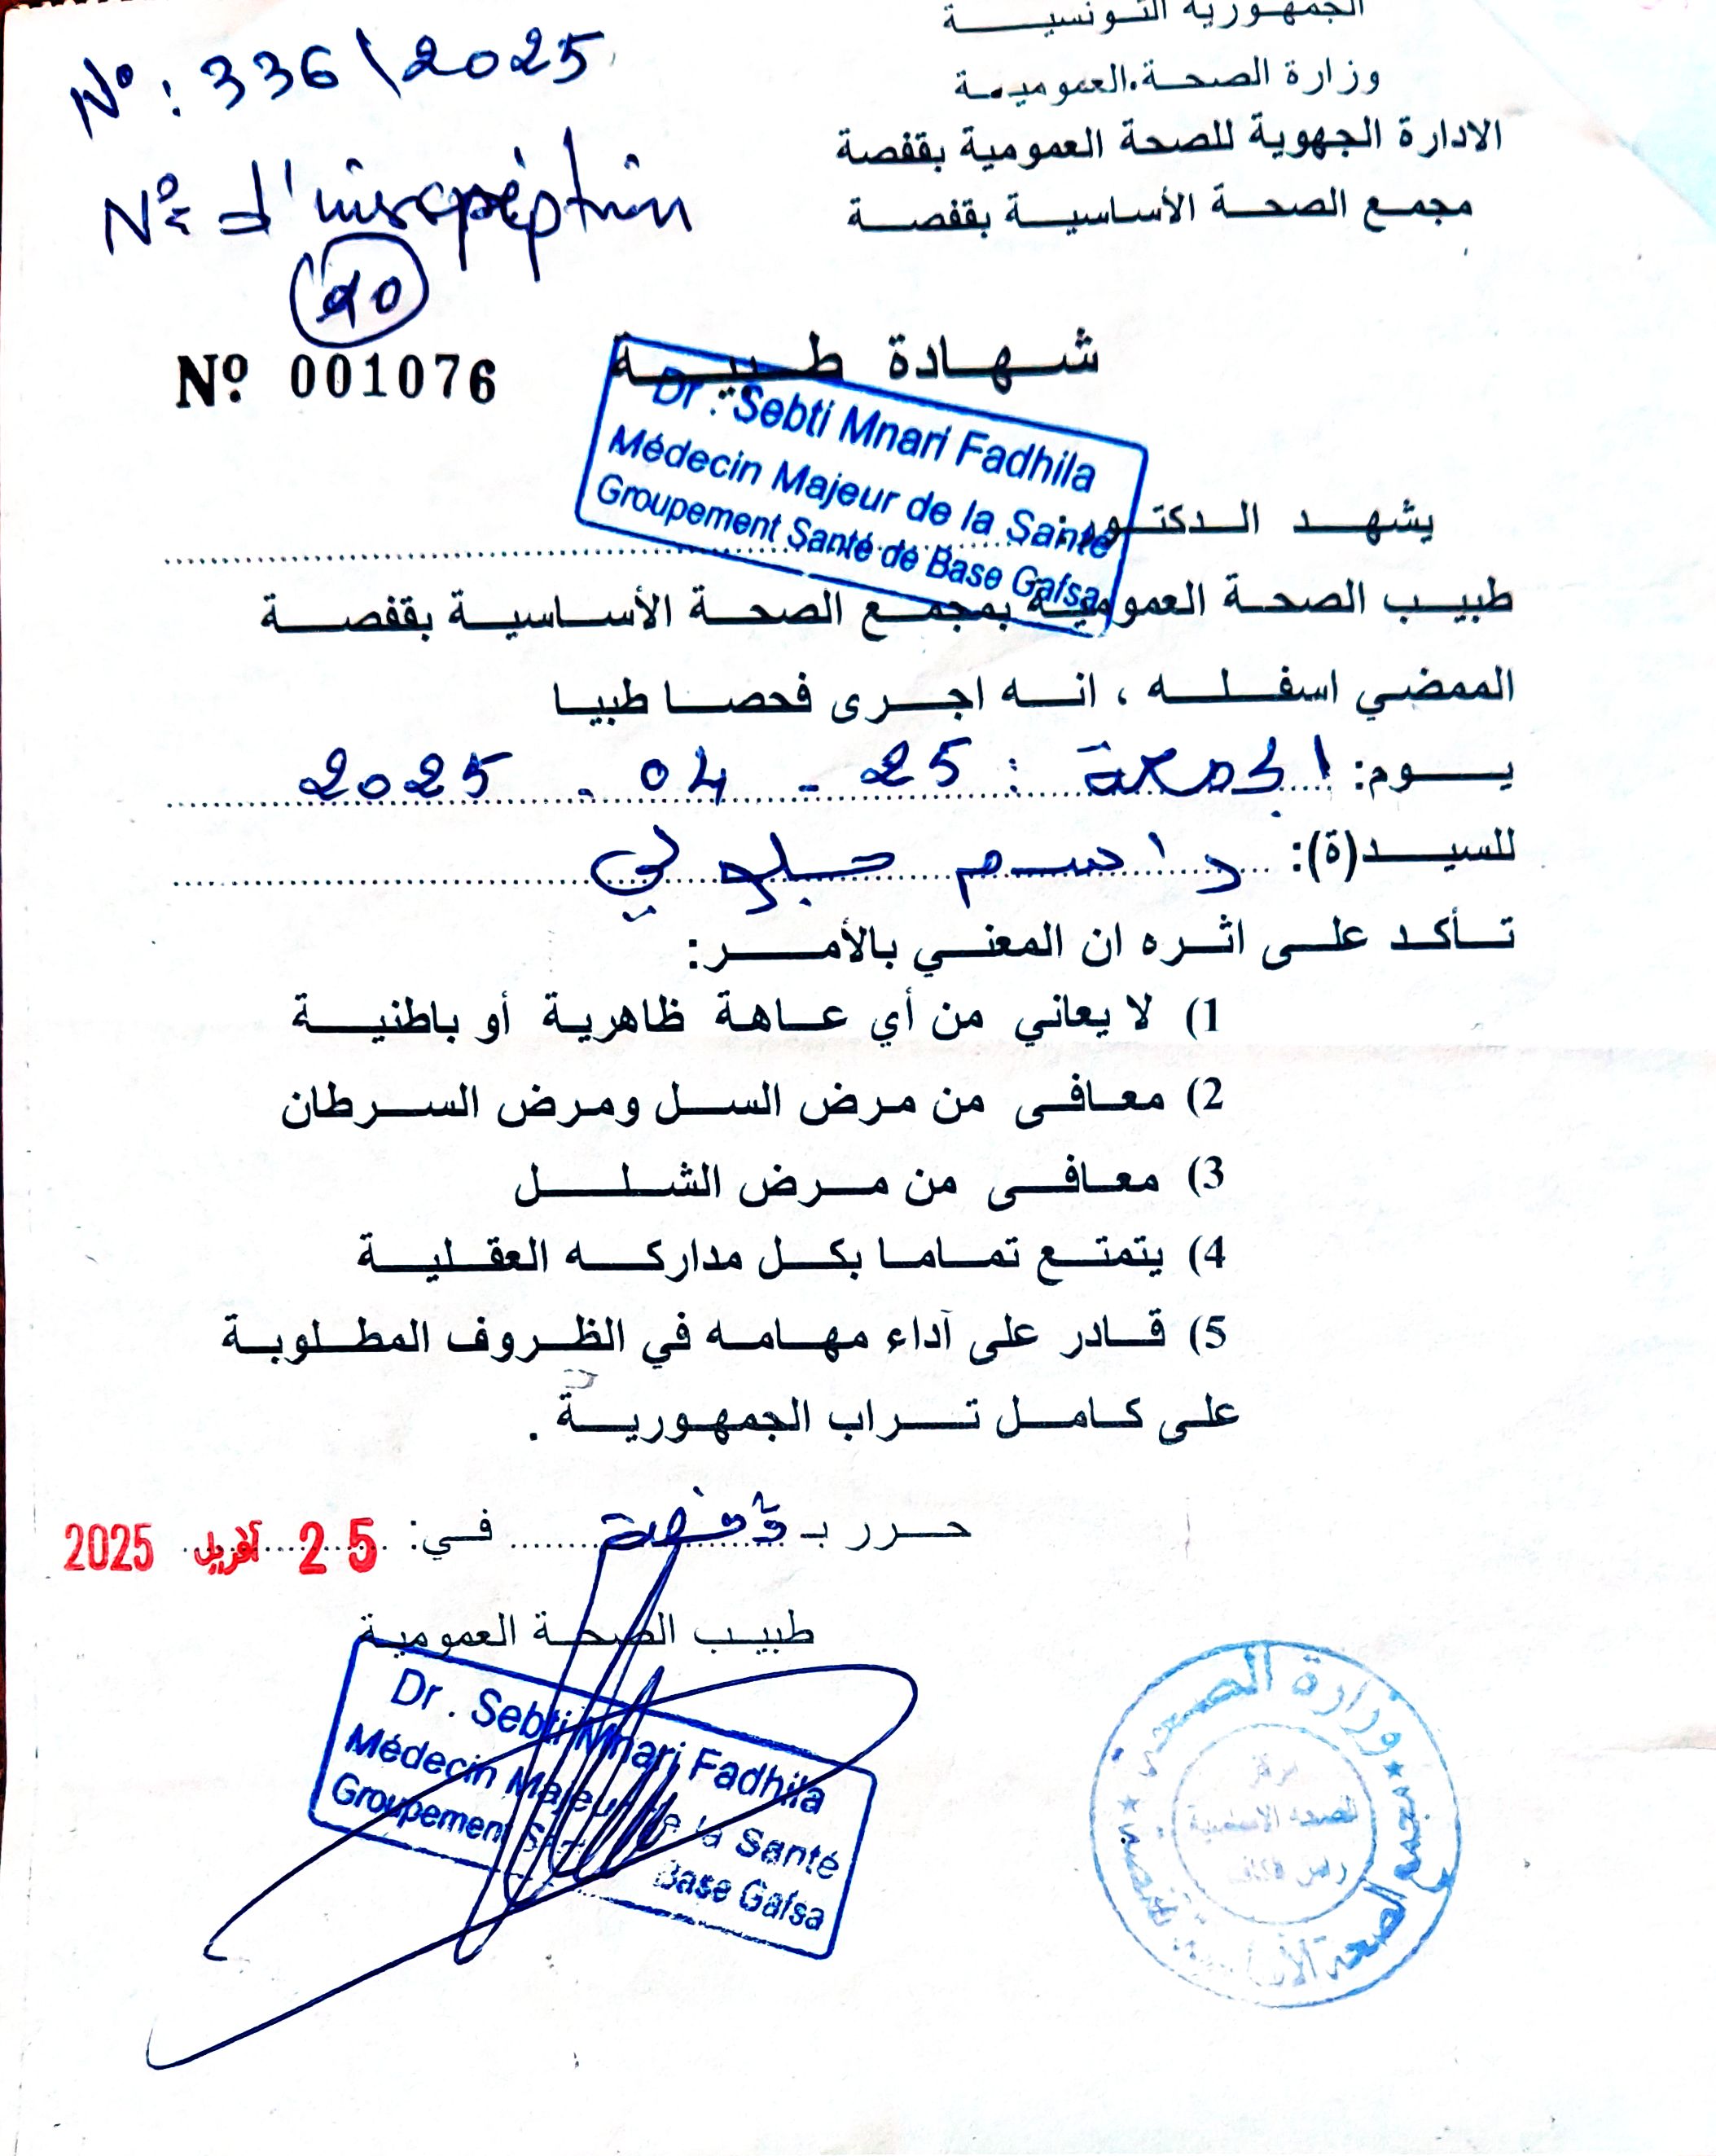 الجمهورية التونسية
وزارة الصحة العمومية
الادارة الجهوية للصحة العمومية بقفصة
مجمع الصحة الأساسية بقفصة
N° : 336 \ 2025
N° d'inscréption
20
Nº 001076
شهادة طبية
Dr . Sebti Mnari Fadhila
Médecin Majeur de la Santé
Groupement Santé de Base Gafsa
يشهد الدكتور:
طبيب الصحة العمومية بمجمع الصحة الأساسية بقفصة
الممضي اسفله ، انه اجرى فحصا طبيا
يوم: الجمعة : 25 - 04 - 2025
للسيد(ة):
تأكد على اثره ان المعني بالأمر:
1) لا يعاني من أي عاهة ظاهرية أو باطنية
2) معافى من مرض السل ومرض السرطان
3) معافى من مرض الشلل
4) يتمتع تماما بكل مداركه العقلية
5) قادر على آداء مهامه في الظروف المطلوبة
على كامل تراب الجمهورية .
حرر بـ قفصة في: 25 أفريل 2025
طبيب الصحة العمومية
Dr . Sebti Mnari Fadhila
Médecin Majeur de la Santé
Groupement Santé de Base Gafsa
وزارة الصحة
مجمع الصحة الأساسية بقفصة
مركز
الصحة الاساسية